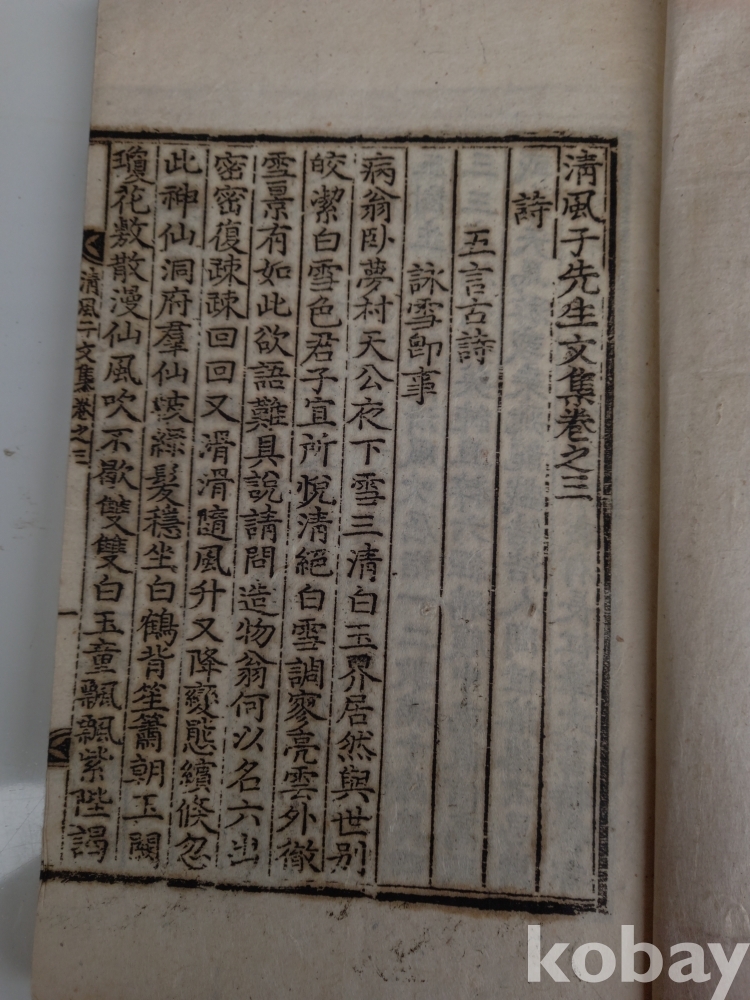 清風子先生文集卷之三
詩
五言古詩
詠雪卽事
病翁卧夢村天公夜下雪三清白玉界居然與世别
皎潔白雪色君子宜所悅清絕白雪調寥亮雲外徹
雪景有如此欲語難具說請問造物翁何以名六出
密密復疎疎回回又滑滑隨風升又降變態繽倏忽
此神仙洞府羣仙皷綠髮穩坐白鶴背笙簫朝玉闕
瓊花敷散漫仙風吹不歇雙雙白玉童飄飄紫陛謁
清風子文集卷之三
一
kobay